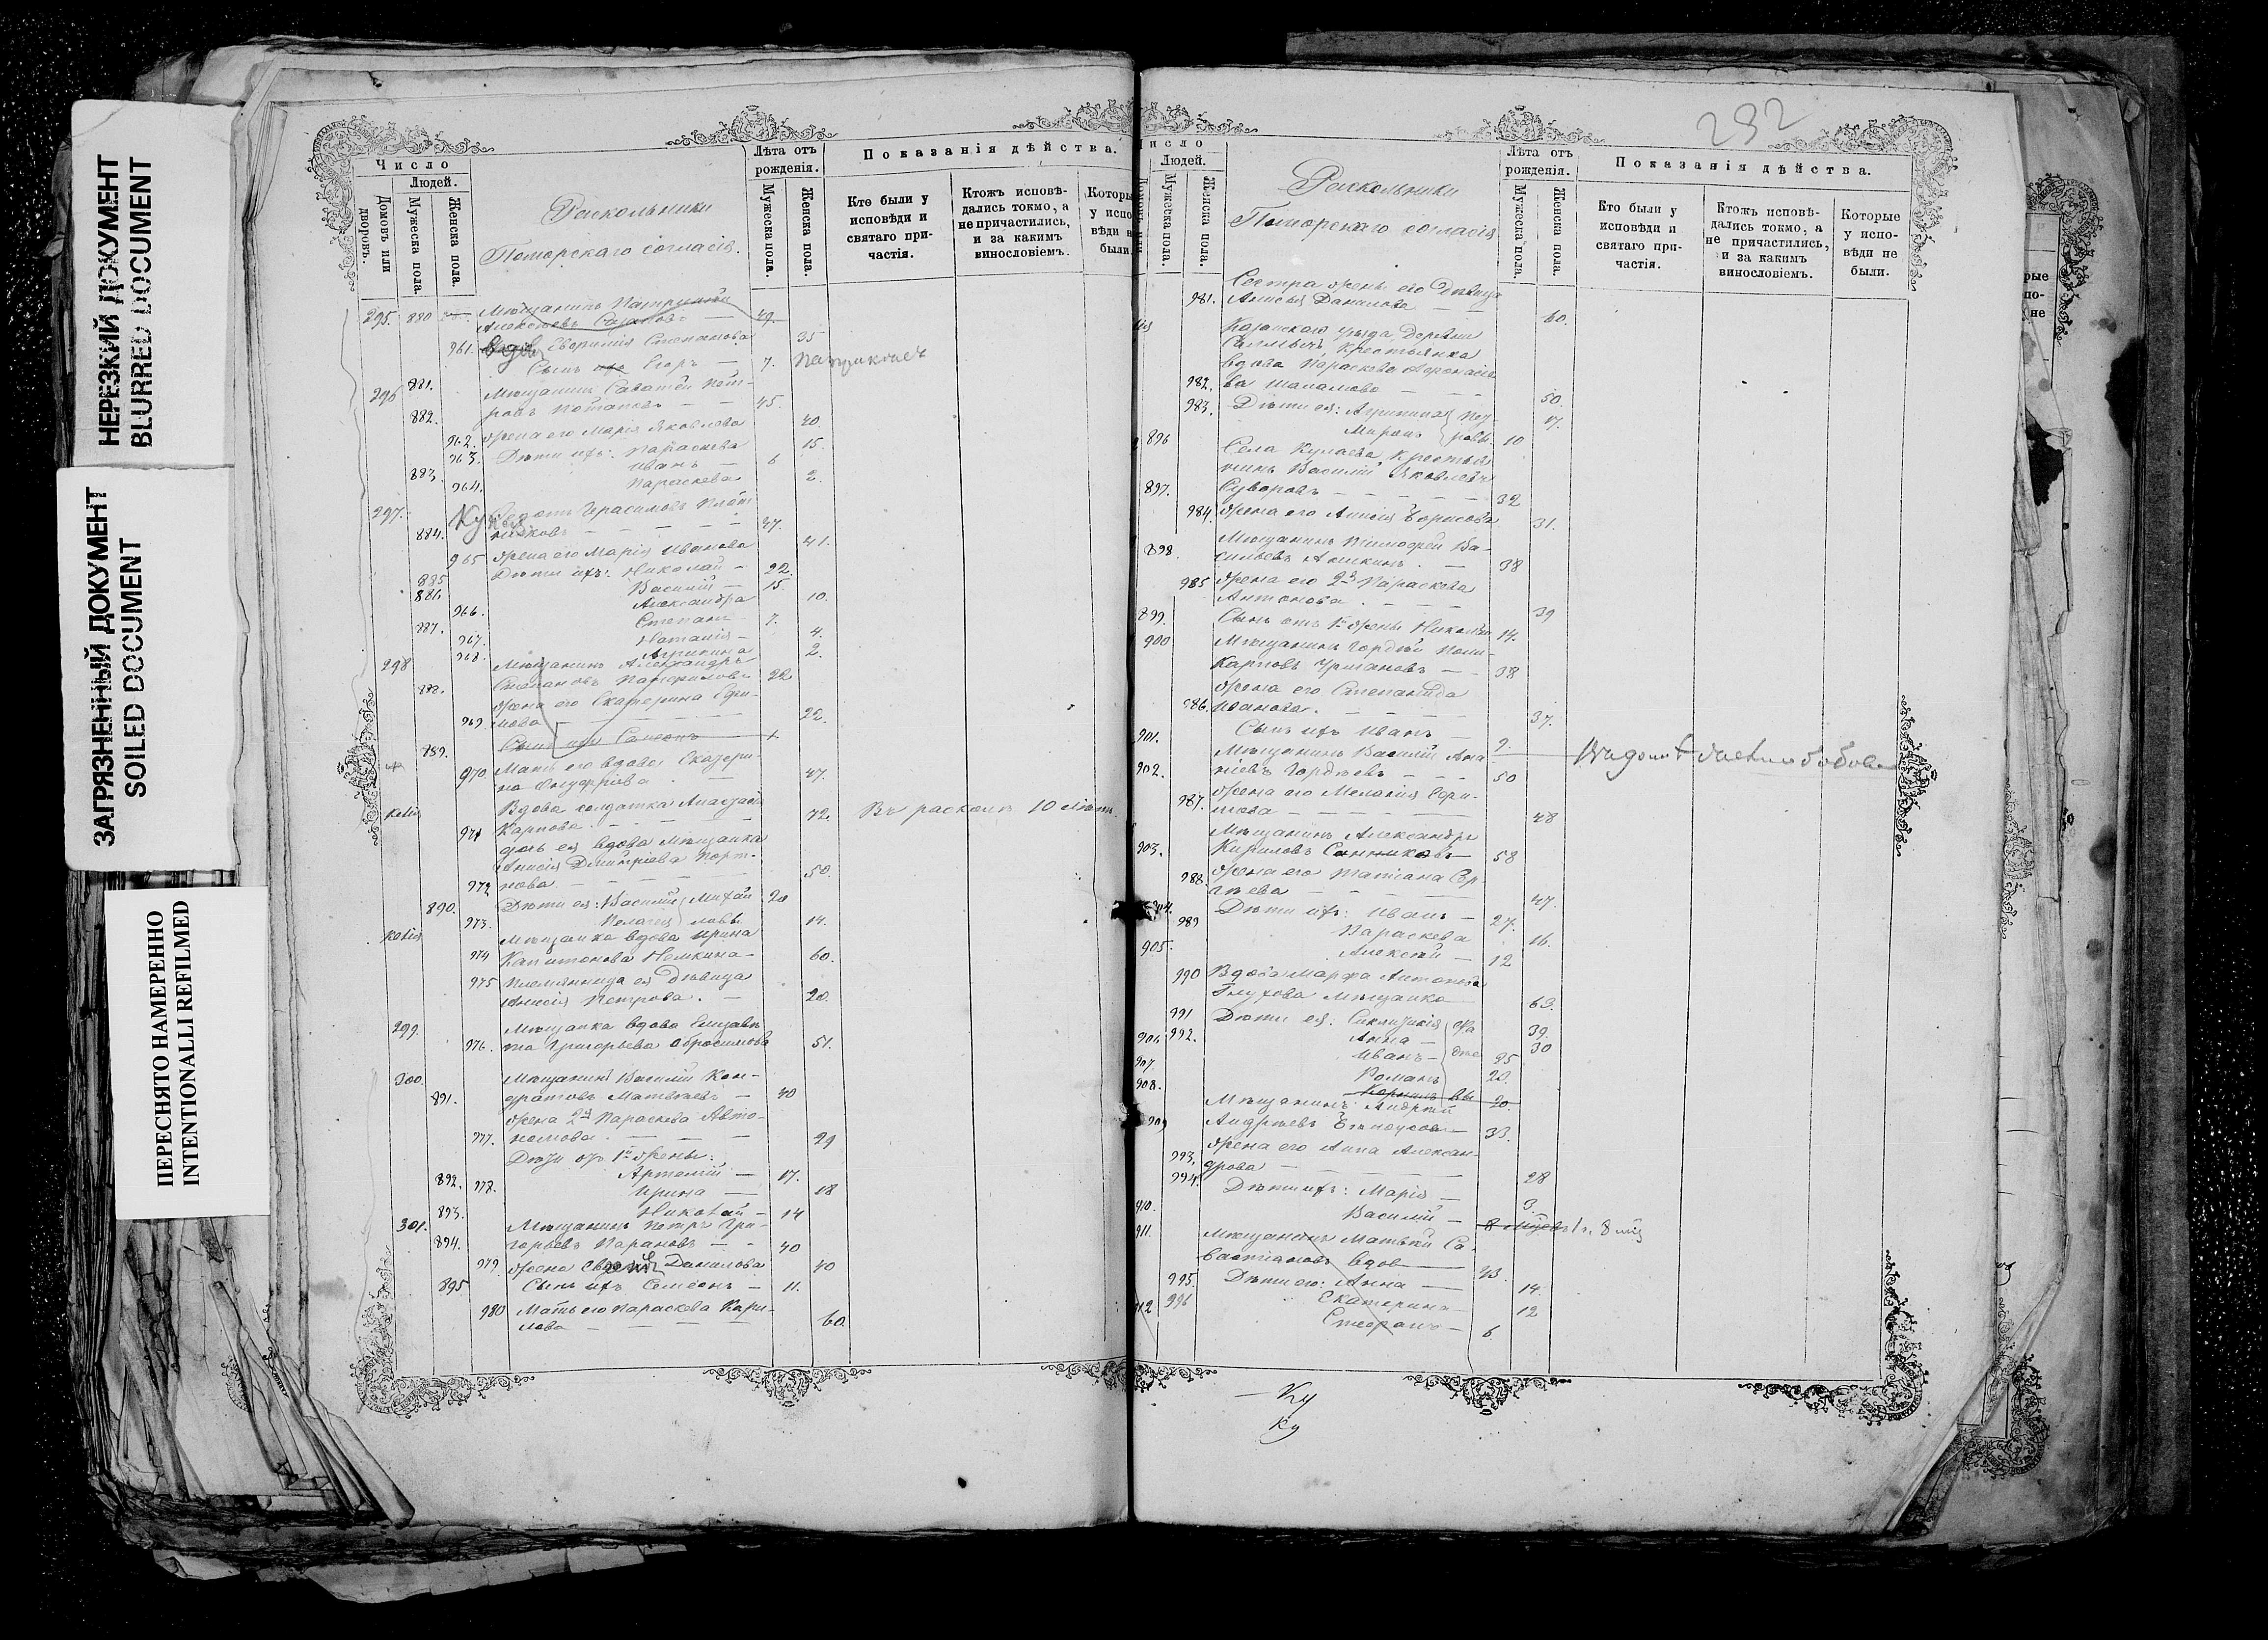 НЕРЕЗКИЙ ДОКУМЕНТ
BLURRED DOCUMENT
ЗАГРЯЗНЕННЫЙ ДОКУМЕНТ
SOILED DOCUMENT
ПЕРЕСНЯТО НАМЕРЕННО
INTENTIONALLI REFILMED
Число
Людей.
Домовъ или дворовъ.
Мужеска пола.
Женска пола.
Раскольники
Поморскаго согласія.
Лѣта отъ рожденія.
Мужеска пола.
Женска пола.
Показанія дѣйства.
Кто были у исповѣди и святаго причастія.
Ктожъ исповѣдались токмо, а не причастились, и за какимъ винословіемъ.
Которы
у испо
вѣди н
были
295. 880 Мѣщанинъ Патрикій
Алексѣевъ Сазановъ — 49.
961. вдова Евфимія Степанова 35
881. Сынъ Егоръ — 7. Патрикіевъ
296 Мѣщанинъ Саватей Пет-
882. ровъ Потаповъ — — 45.
962. жена его Марія Яковлева 40.
963. Дѣти ихъ: Параскева 15.
883. Иванъ — 6
964. Параскева 2.
297. Федотъ Герасимовъ Плот
884. никовъ — — — — 47.
965 жена его Марія Иванова 41.
885 Дѣти ихъ: Николай — 22.
886 Василій — 15.
966. Александра 10.
887. Степанъ 7.
967. Наталія — 4.
968. Агрипина 2.
298 Мѣщанинъ Александръ
888. Степановъ Панфиловъ 22
жена его Екатерина Ефи-
969. мова — — — — 22.
889. Сынъ ихъ Самсонъ — 1
970. Мать его вдова Екатери-
на Онуфріева . — 47.
келія Вдова солдатка Анастасія
971 Карпова. — — — — 72 Въ расколѣ 10 лѣтъ.
дочь ея вдова мѣщанка
Анисія Димитріева Порт-
972 нова — — — — 50.
890. Дѣти ея: Василій Михай 20
973. Пелагея ловы 14.
келія Мѣщанка вдова Ирина
974 Капитонова Немкина — 60.
975 Племянница ея дѣвица
Анисія Петрова. — 20.
299. Мѣщанка вдова Елизаве
976. та Григорьева Абросимова 51.
300. Мѣщанинъ Василій Кон-
891. дратовъ Матвѣевъ — 40
жена 2я Параскева Авто-
977. номова. — — — 29
Дѣти отъ 1й жены:
892. Артемій — 17.
978. Ирина — 18
893. Николай — 14
301. Мѣщанинъ Петръ Гри-
894. горьевъ Парановъ — - 40
979 жена Данилова 40
895 Сынъ ихъ Семенъ — 11.
980 Мать его Параскева Кири-
лова — — — — 60.
232
Число
Людей.
Мужеска пола.
Женска пола.
Раскольники
Поморскаго согласія
Лѣта отъ рожденія.
Мужеска пола.
Женска пола.
Показанія дѣйства.
Кто были у исповѣди и святаго причастія.
Ктожъ исповѣдались токмо, а не причастились, и за какимъ винословіемъ.
Которые у исповѣди не были.
Сестра жены его дѣвица
981. Анисья Данилова — — 60.
Казанскаго уѣзда, деревни
Крестьянка
вдова Параскева Афонасье
982. ва Шаламова — — — 50.
983. Дѣти ея: Агрипина Пет 17.
896 Миронъ ровы 10
Села Кулаева крестья
нинъ Василій Яковлевъ
897. Суворовъ — — — — — 32
984. жена его Анисія Борисова 31.
Мѣщанинъ Тимофей Ва-
898. сильевъ Аникинъ. — 38
985 жена его 2я Параскева
Антонова. — — — 39
899. Сынъ отъ 1й жены Николай 14.
900 Мѣщанинъ Гордѣй Поли-
карповъ — 38
жена его Степанида
986. Иванова. — — — — 37.
901. Сынъ ихъ Иванъ — 9.
Мѣщанинъ Василій Ана
902. ніевъ Гордѣевъ — — — 50
987. жена его Меланія Ефи-
мова — — — — — 48
Мѣщанинъ Александръ
903. Кириловъ Санниковъ — 58
988. жена его Татіана Сер-
гѣева — — — — 47.
904. Дѣти ихъ: Иванъ — 27.
989 Параскева 16.
905. Алексѣй — 12
990 Вдова Марфа Антонова
Глухова мѣщанка 63.
991 Дѣти ея: 39.
992. Анна — 30
906 Иванъ — 25
907 Романъ 22.
908. 20.
Мѣщанинъ Андрей
909 Андреевъ Бѣлоусовъ — 33.
993. жена его Анна Алексан-
дрова — — — — 28
994. Дѣти ихъ: Марія — 3
910. Василій — 8 мѣсяцевъ 1 г. 8 мц
911. Мѣщанинъ Матвѣй Са-
вастіановъ вдов — 43.
995. Дѣти его: Анна — 14.
996 Екатерина — 12
912 Стефанъ — 6
— Ку
Ку